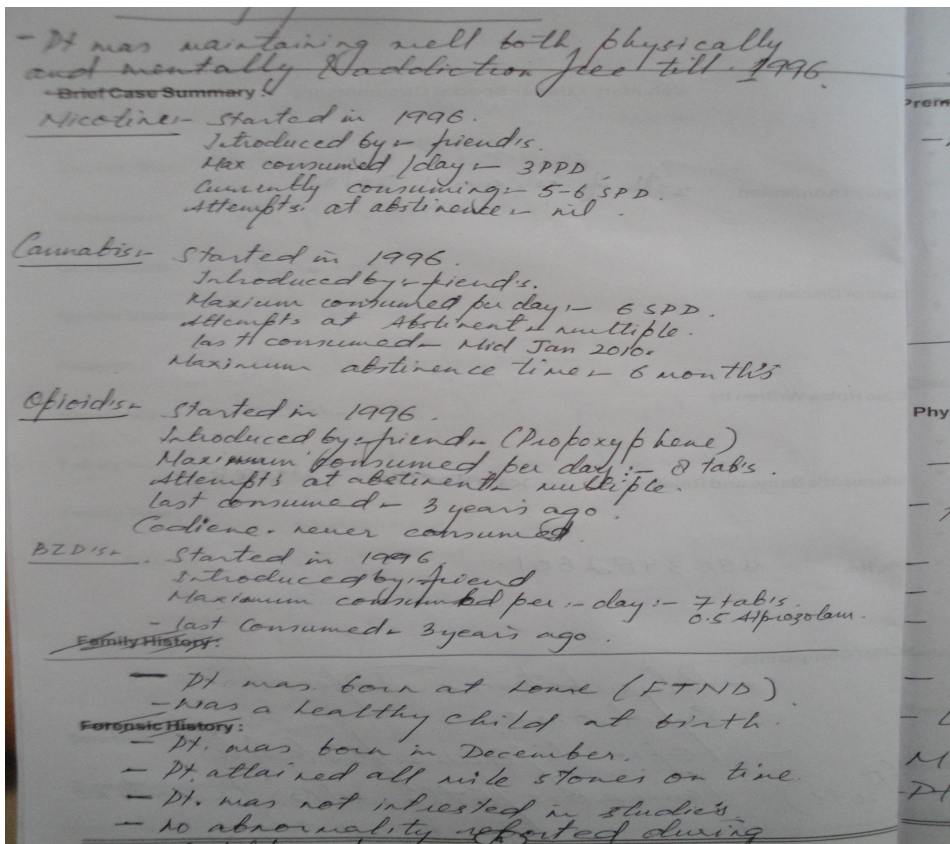 - Pt was maintaining well both, physically
and mentally & addiction free till 1996.
Brief Case Summary :
Nicotine:- Started in 1996.
Introduced by:- friend's.
Max consumed /day:- 3 PPD
Currently consuming:- 5-6 SPD.
Attempts at abstinence:- nil.
Cannabis:- Started in 1996.
Introduced by:- friend's.
Maxium consumed per day:- 6 SPD.
Attempts at Abstinent:- multiple.
last consumed:- Mid Jan 2010.
Maximum abstinence time:- 6 month's
Opioid's:- Started in 1996.
Introduced by:- friend:- (Propoxyphene)
Maximum consumed per day:- 8 tab's.
Attempt's at abstinent:- multiple.
last consumed:- 3 years ago.
Codiene- never consumed.
BZD's:- Started in 1996
Introduced by:- friend
Maximum consumbed per:- day:- 7 tab's.
0.5 Alprozolam.
- last consumed:- 3 years ago.
Family History:
- Pt was born at home (FTND)
- Was a healthy child at birth.
Forensic History :
- Pt. was born in December.
- Pt. attained all mile stones on time.
- Pt. was not intrested in studies
- No abnormality reported during
Prem
Phy
M
- Pt